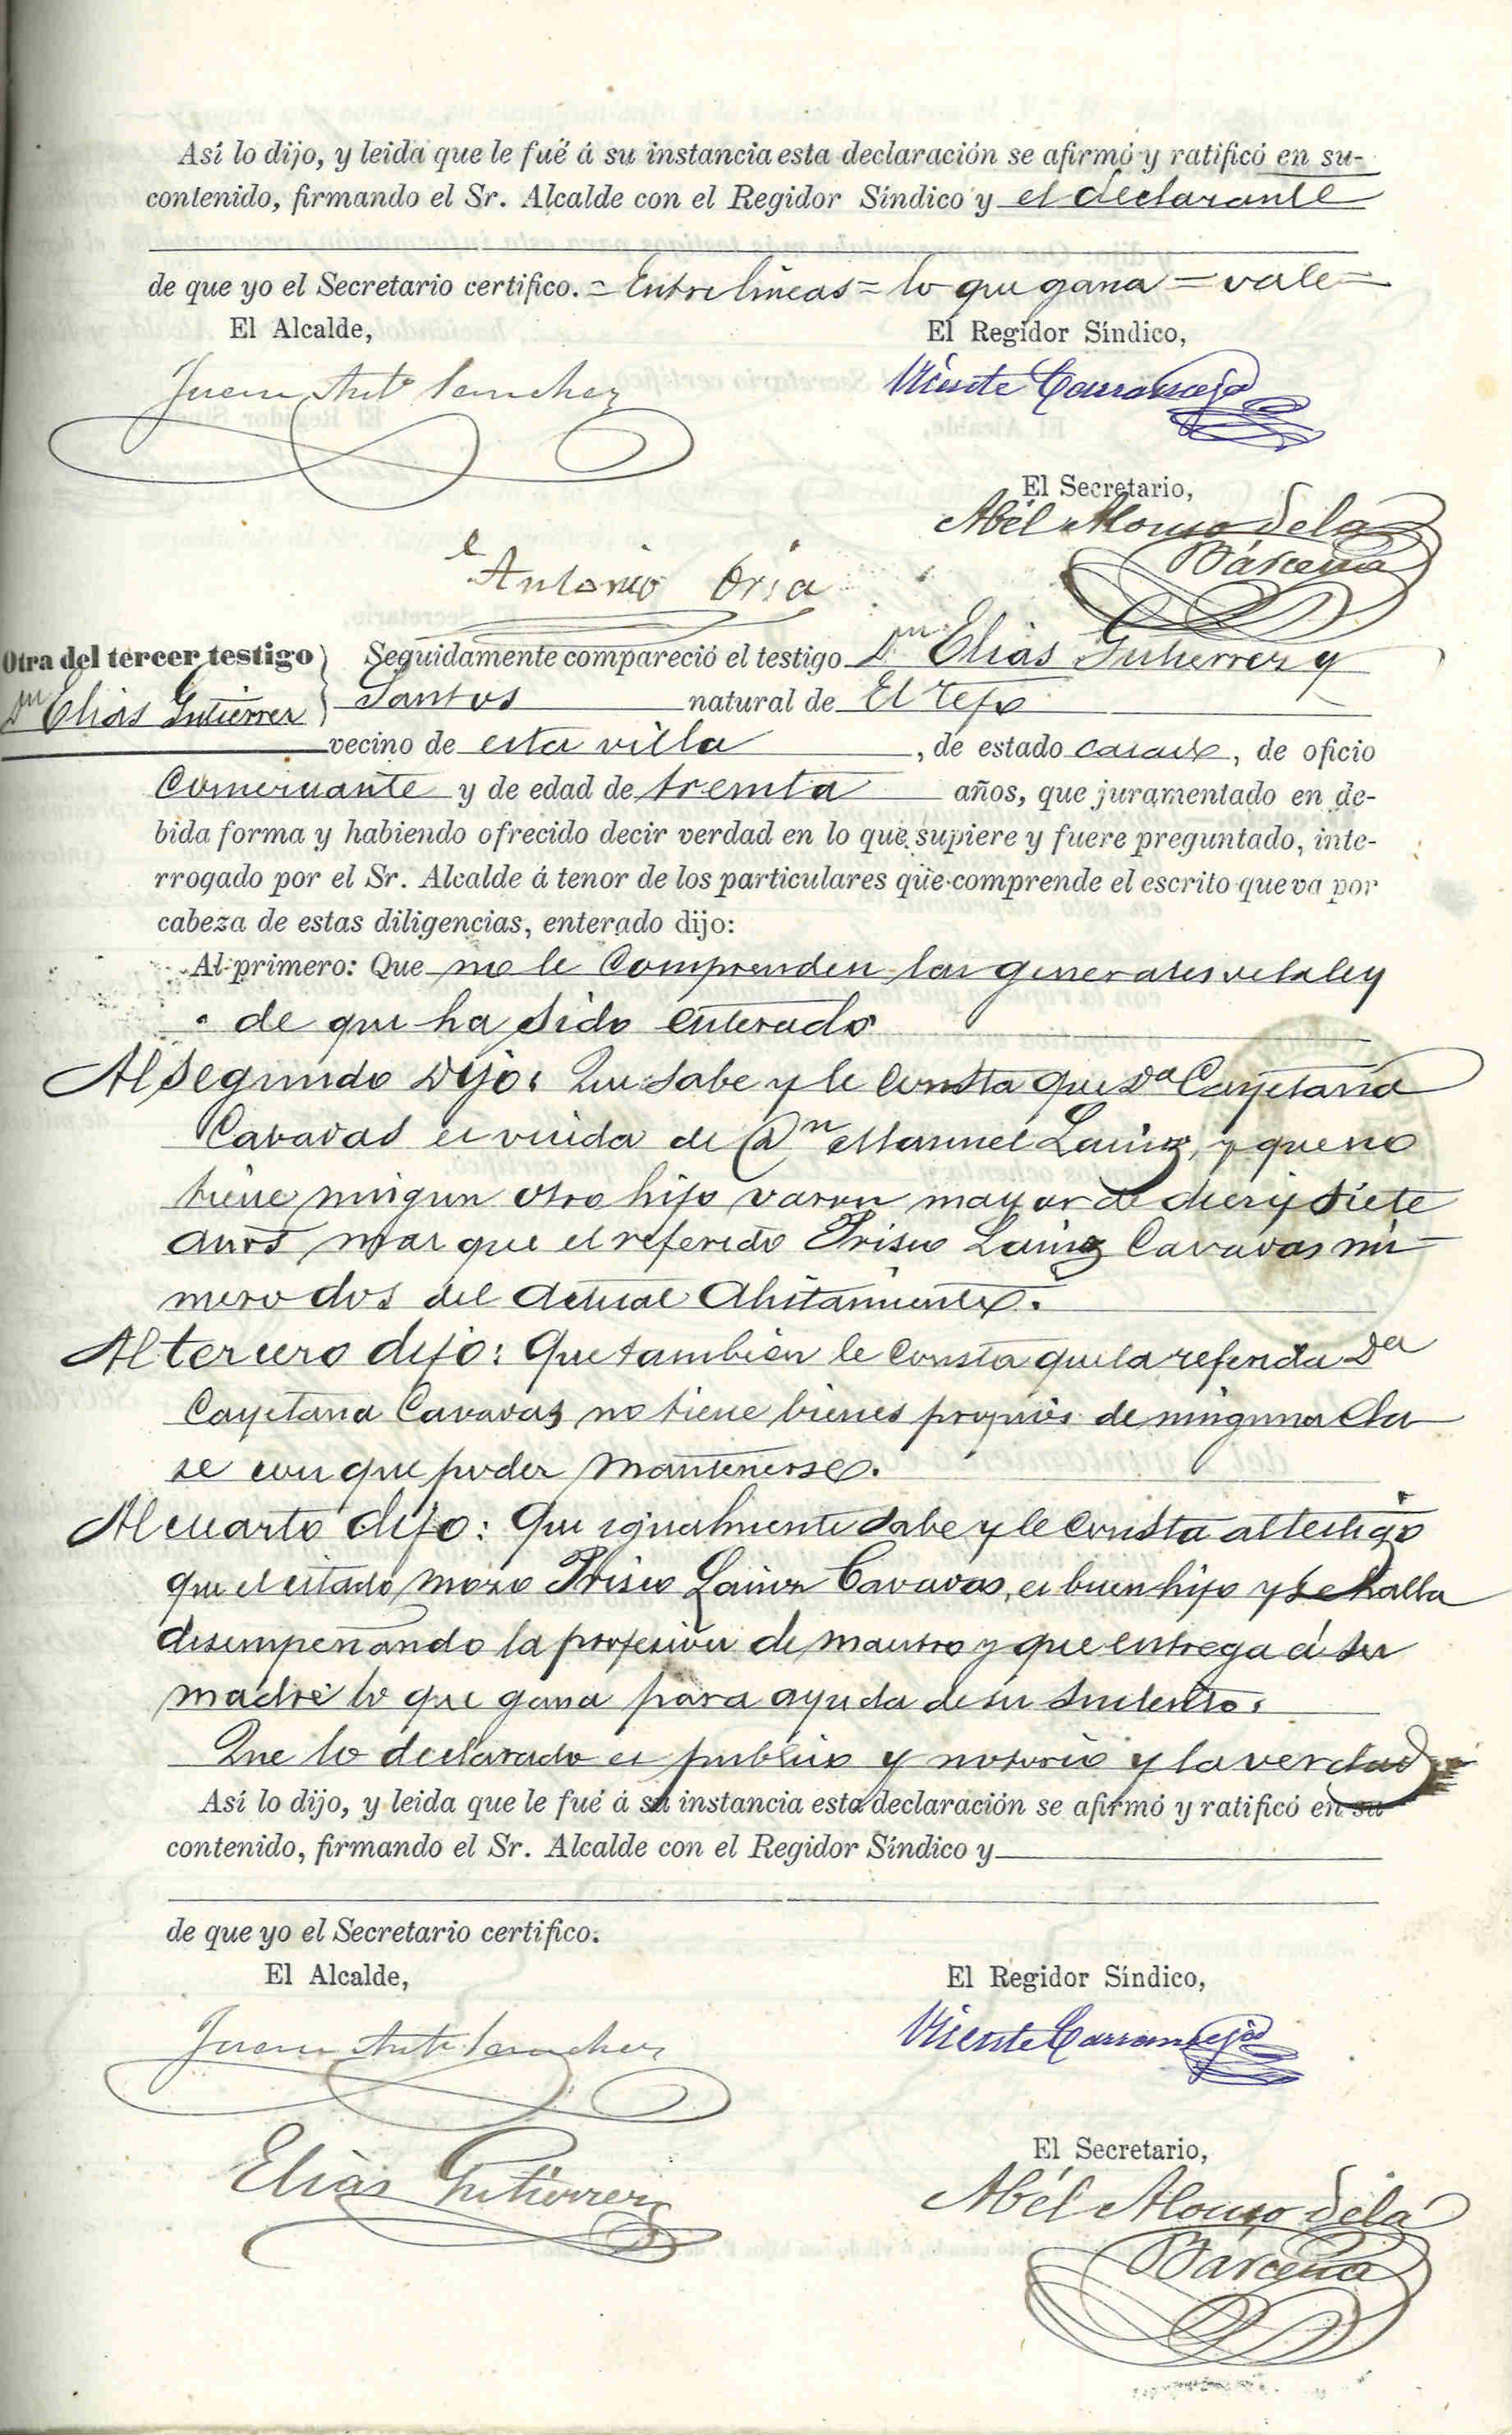 Así lo dijo, y leida que le fué á su instancia esta declaración se afirmó y ratificó en su
contenido, firmando el Sr. Alcalde con el Regidor Síndico y el declarante
de que yo el Secretario certifico. = Entrelineas = lo que gana = vale =
El Alcalde,
El Regidor Síndico,
Juan Anto Sanchez
Vicente
El Secretario,
Abél Alonso de la
Bárcena
Antonio Oria
Otra del tercer testigo
Dn Elias Gutiérrez
Seguidamente compareció el testigo Dn Elias Gutierrez y
Santos natural de El Tejo
vecino de esta villa, de estado casado, de oficio
Comerciante y de edad de treinta años, que juramentado en de-
bida forma y habiendo ofrecido decir verdad en lo que supiere y fuere preguntado, inte-
rrogado por el Sr. Alcalde á tenor de los particulares que comprende el escrito que va por
cabeza de estas diligencias, enterado dijo:
Al primero: Que no le Comprenden las generales de la ley
de que ha sido enterado
Al segundo Dijo: Que sabe y le consta que Da Cayetana
Cavavas es viuda de Dn Manuel Lainz, y que no
tiene ningun otro hijo varon mayor de diez y siete
años mas que el referido Prisco Lainz Cavavas nu-
mero dos del actual Alistamiento.
Al tercero dijo: Que tambien le consta que la referida Da
Cayetana Cavavas no tiene bienes propios de ninguna cla-
se con que poder mantenerse.
Al cuarto dijo: Que igualmente sabe y le consta al testigo
que el citado mozo Prisco Lainz Cavavas, es buen hijo y se halla
desempeñando la profesion de maestro y que entrega á su
madre lo que gana para ayuda de su sustento.
Que lo declarado es publico y notorio y la verdad
Así lo dijo, y leida que le fué á su instancia esta declaración se afirmó y ratificó en su
contenido, firmando el Sr. Alcalde con el Regidor Síndico y
de que yo el Secretario certifico.
El Alcalde,
El Regidor Síndico,
Juan Anto Sanchez
Vicente
Elias Gutiérrez
El Secretario,
Abél Alonso de la
Bárcena